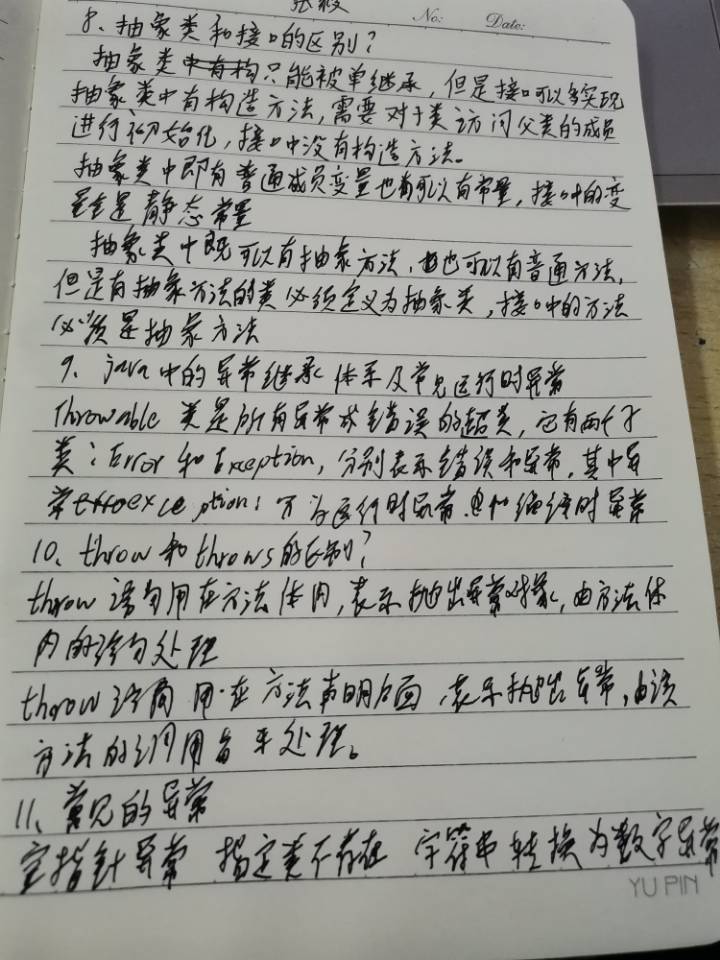 No: Date:
8、抽象类和接口的区别?
抽象类中有构只能被单继承,但是接口可以多实现
抽象类中有构造方法,需要对子类访问父类的成员
进行初始化,接口中没有构造方法。
抽象类中即有普通成员变量也有可以有常量,接口中的变
量全是静态常量
抽象类中既可以有抽象方法,也可以有普通方法,
但是有抽象方法的类必须定义为抽象类,接口中的方法
必须是抽象方法
9、java中的异常继承体系及常见运行时异常
Throwable 类是所有异常或错误的超类,它有两个子
类:Error和Exception,分别表示错误和异常,其中异
常exception:分为运行时异常和编译时异常
10、throw和throws的区别?
throw语句用在方法体内,表示抛出异常对象,由方法体
内的语句处理
throw语句 用在方法声明后面,表示抛出异常,由该
方法的调用者来处理。
11、常见的异常
空指针异常 指定类不存在 字符串转换为数字异常
YU PIN